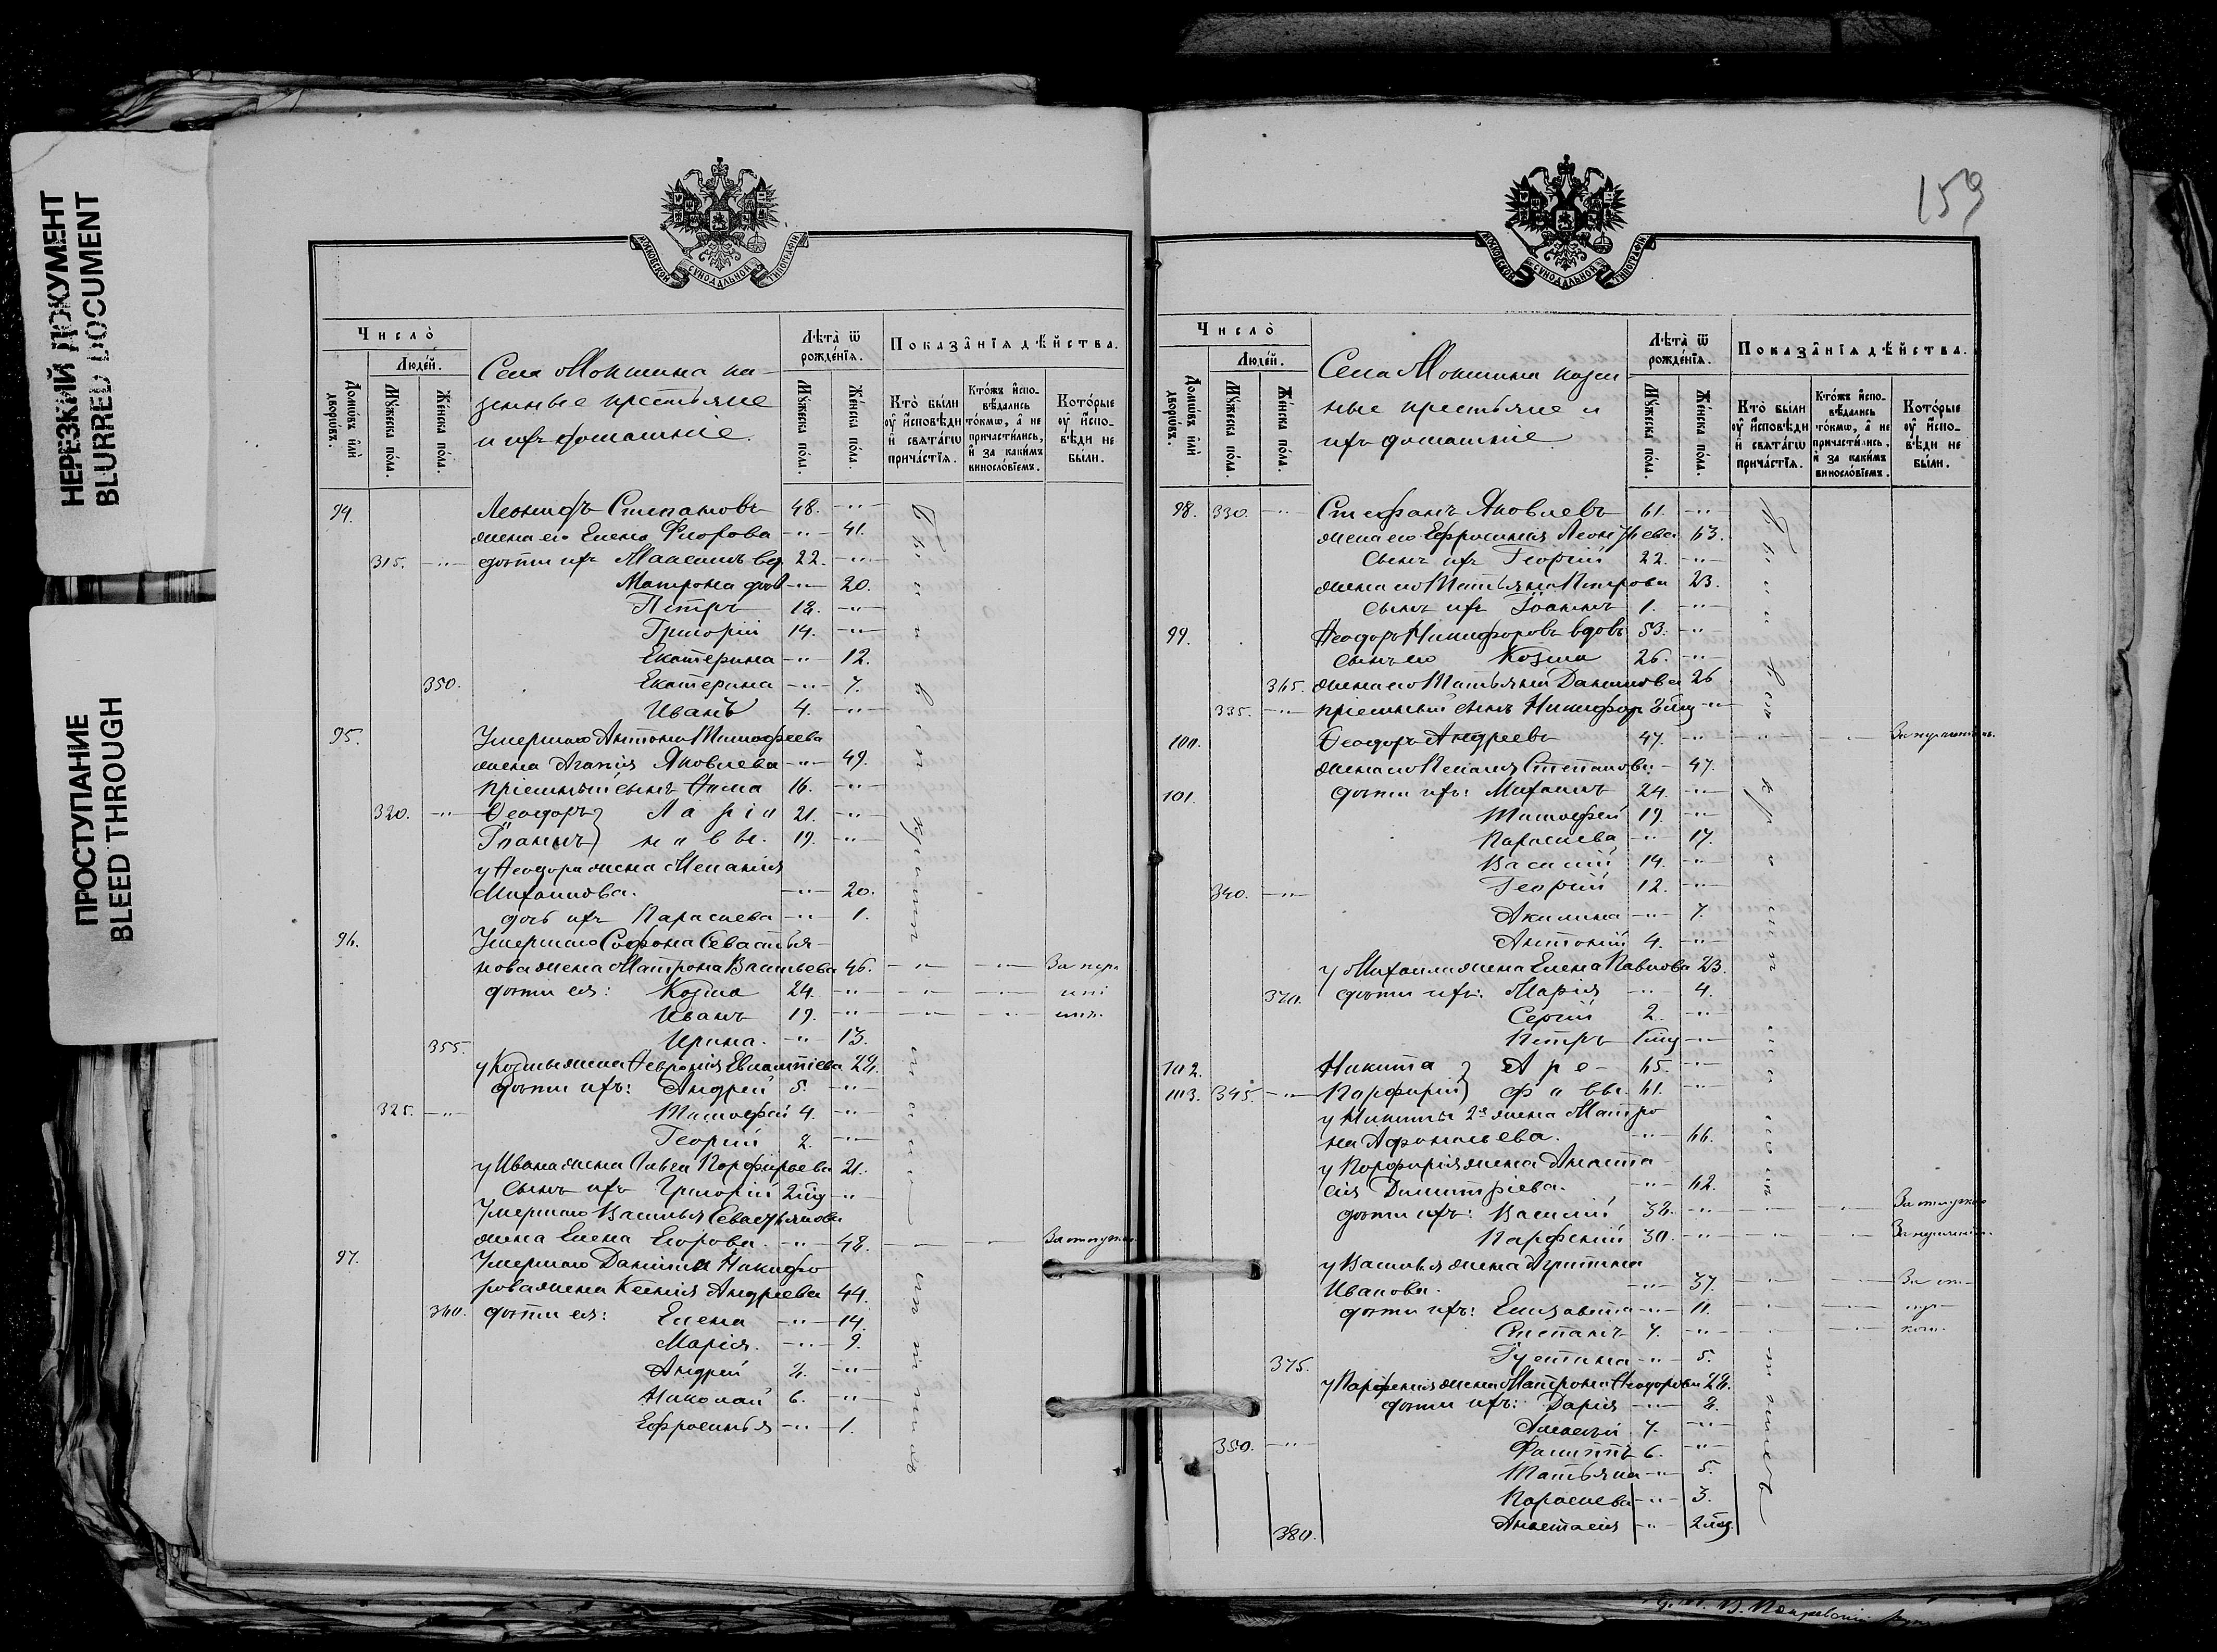 НЕРЕЗКИЙ ДОКУМЕНТ
BLURRED DOCUMENT
ПРОСТУПАНИЕ
BLEED THROUGH
МОСКОВСКОЙ СѴНОДАЛЬНОЙ ТИПОГРАФІИ
Число̀
Людей.
Домѡвъ или дворѡвъ.
Мꙋжеска пола.
Женска пола.
Села Мокшина ка-
зенные крестьяне
и ихъ домашніе.
Лѣта̀ ѿ рожденїѧ.
Мꙋжеска пола.
Женска пола.
Показанїѧ дѣйства.
Кто̀ были оу исповѣди и свѧтагѡ причастїѧ.
Ктожъ исповѣдались токмѡ, а не причастились, и за какимъ винословїемъ.
Которые оу исповѣди не были.
94. Леонидъ Степановъ 48. -"-
жена его Елена Флорова -"- 41.
315. -"- дѣти ихъ Максимъ 22. -"-
Матрона -"- 20.
Петръ 18. -"-
Григорій 14. -"-
Екатерина -"- 12.
350. Екатерина -"- 7.
Иванъ 4. -"-
95. Умершаго Антона Тимофеева
жена Агапія Яковлева -"- 49.
пріемный сынъ Ѳома 16. -"-
320. -"- Ѳеодоръ } Ларіо 21. -"-
Іоаннъ } новы. 19. -"-
у Ѳеодора жена Меланія
Михаилова. -"- 20.
дочь ихъ Параскева -"- 1.
96. Умершаго Софона Севастья-
нова жена Матрона Васильева 46. -"- -"-
дѣти ея: Козма 24. -"- -"-
Иванъ 19. -"- -"-
355. Ирина. -"- 13.
у Козмы жена Ѳеврония 28.
дѣти ихъ: Андрей 5. -"-
325. -"- Тимофей 4. -"-
Георгій 2. -"-
у Ивана жена Ольга Порфирьева 21.
сынъ ихъ Григорій -"-
Умершаго Василья Севастьянова
жена Елена Егорова. -"- 48.
97. Умершаго Даниила Никифо
рова жена Ксенія Андреева 44.
360. дѣти ея: Елена -"- 14.
Марія. -"- 9.
Андрей -"-
Николай 6. -"-
Ефросинья -"- 1.
159
МОСКОВСКОЙ СѴНОДАЛЬНОЙ ТИПОГРАФІИ
Число̀
Людей.
Домѡвъ или дворѡвъ.
Мꙋжеска пола.
Женска пола.
Села Мокшина казен
ные крестьяне и
ихъ домашніе
Лѣта̀ ѿ рожденїѧ.
Мꙋжеска пола.
Женска пола.
Показанїѧ дѣйства.
Кто̀ были оу исповѣди и свѧтагѡ причастїѧ.
Ктожъ исповѣдались токмѡ, а не причастились, и за какимъ винословїемъ.
Которые оу исповѣди не были.
98. 330. -"- Стефанъ Яковлевъ 61. -"-
жена его Ефросинія 63.
сынъ ихъ Георгій 22. -"-
жена его Татьяна Петрова 23.
сынъ ихъ Іоаннъ 1. -"-
99. Ѳеодоръ Никифоровъ вдовъ 53. -"-
сынъ его Козма 26. -"-
365. жена его Татьяна Данилова 26
335. -"- пріемный сынъ Никифоръ -"-
100. Ѳеодоръ Андреевъ 47. -"- -"-
жена его Пелагія Степанова 47.
101. дѣти ихъ: Михаилъ 24. -"-
Тимофей 19. -"-
Параскева -"- 17.
Василій 14. -"-
340. -"- Георгій 12. -"-
Акилина -"- 7.
Антоній 4. -"-
у Михаила жена Елена Павлова 23.
370. дѣти ихъ: Марія -"- 4.
Сергій 2. -"-
Петръ -"-
102. Никита } Аре- 65. -"-
103. 345. -"- Порфирій } ф"вы. 61. -"-
у Никиты 2я жена Матро
на Афанасьева. -"- 66.
у Порфирія жена Анаста-
сія Димитріева. -"- 62.
дѣти ихъ: Василій 38. -"-
Парфеній 30. -"-
у Василья жена Агрипина
Иванова. -"- 37.
дѣти ихъ: Елизавета -"- 11.
Степанъ 7. -"-
375. Іустина -"- 5.
у Парфенія жена Матрона Ѳеодорова 28.
дѣти ихъ: Дарія -"- 8.
Алексѣй 7. -"-
350. -"- Филиппъ 6. -"-
Татьяна -"- 5.
Параскева -"- 3.
380. Анастасія -"-